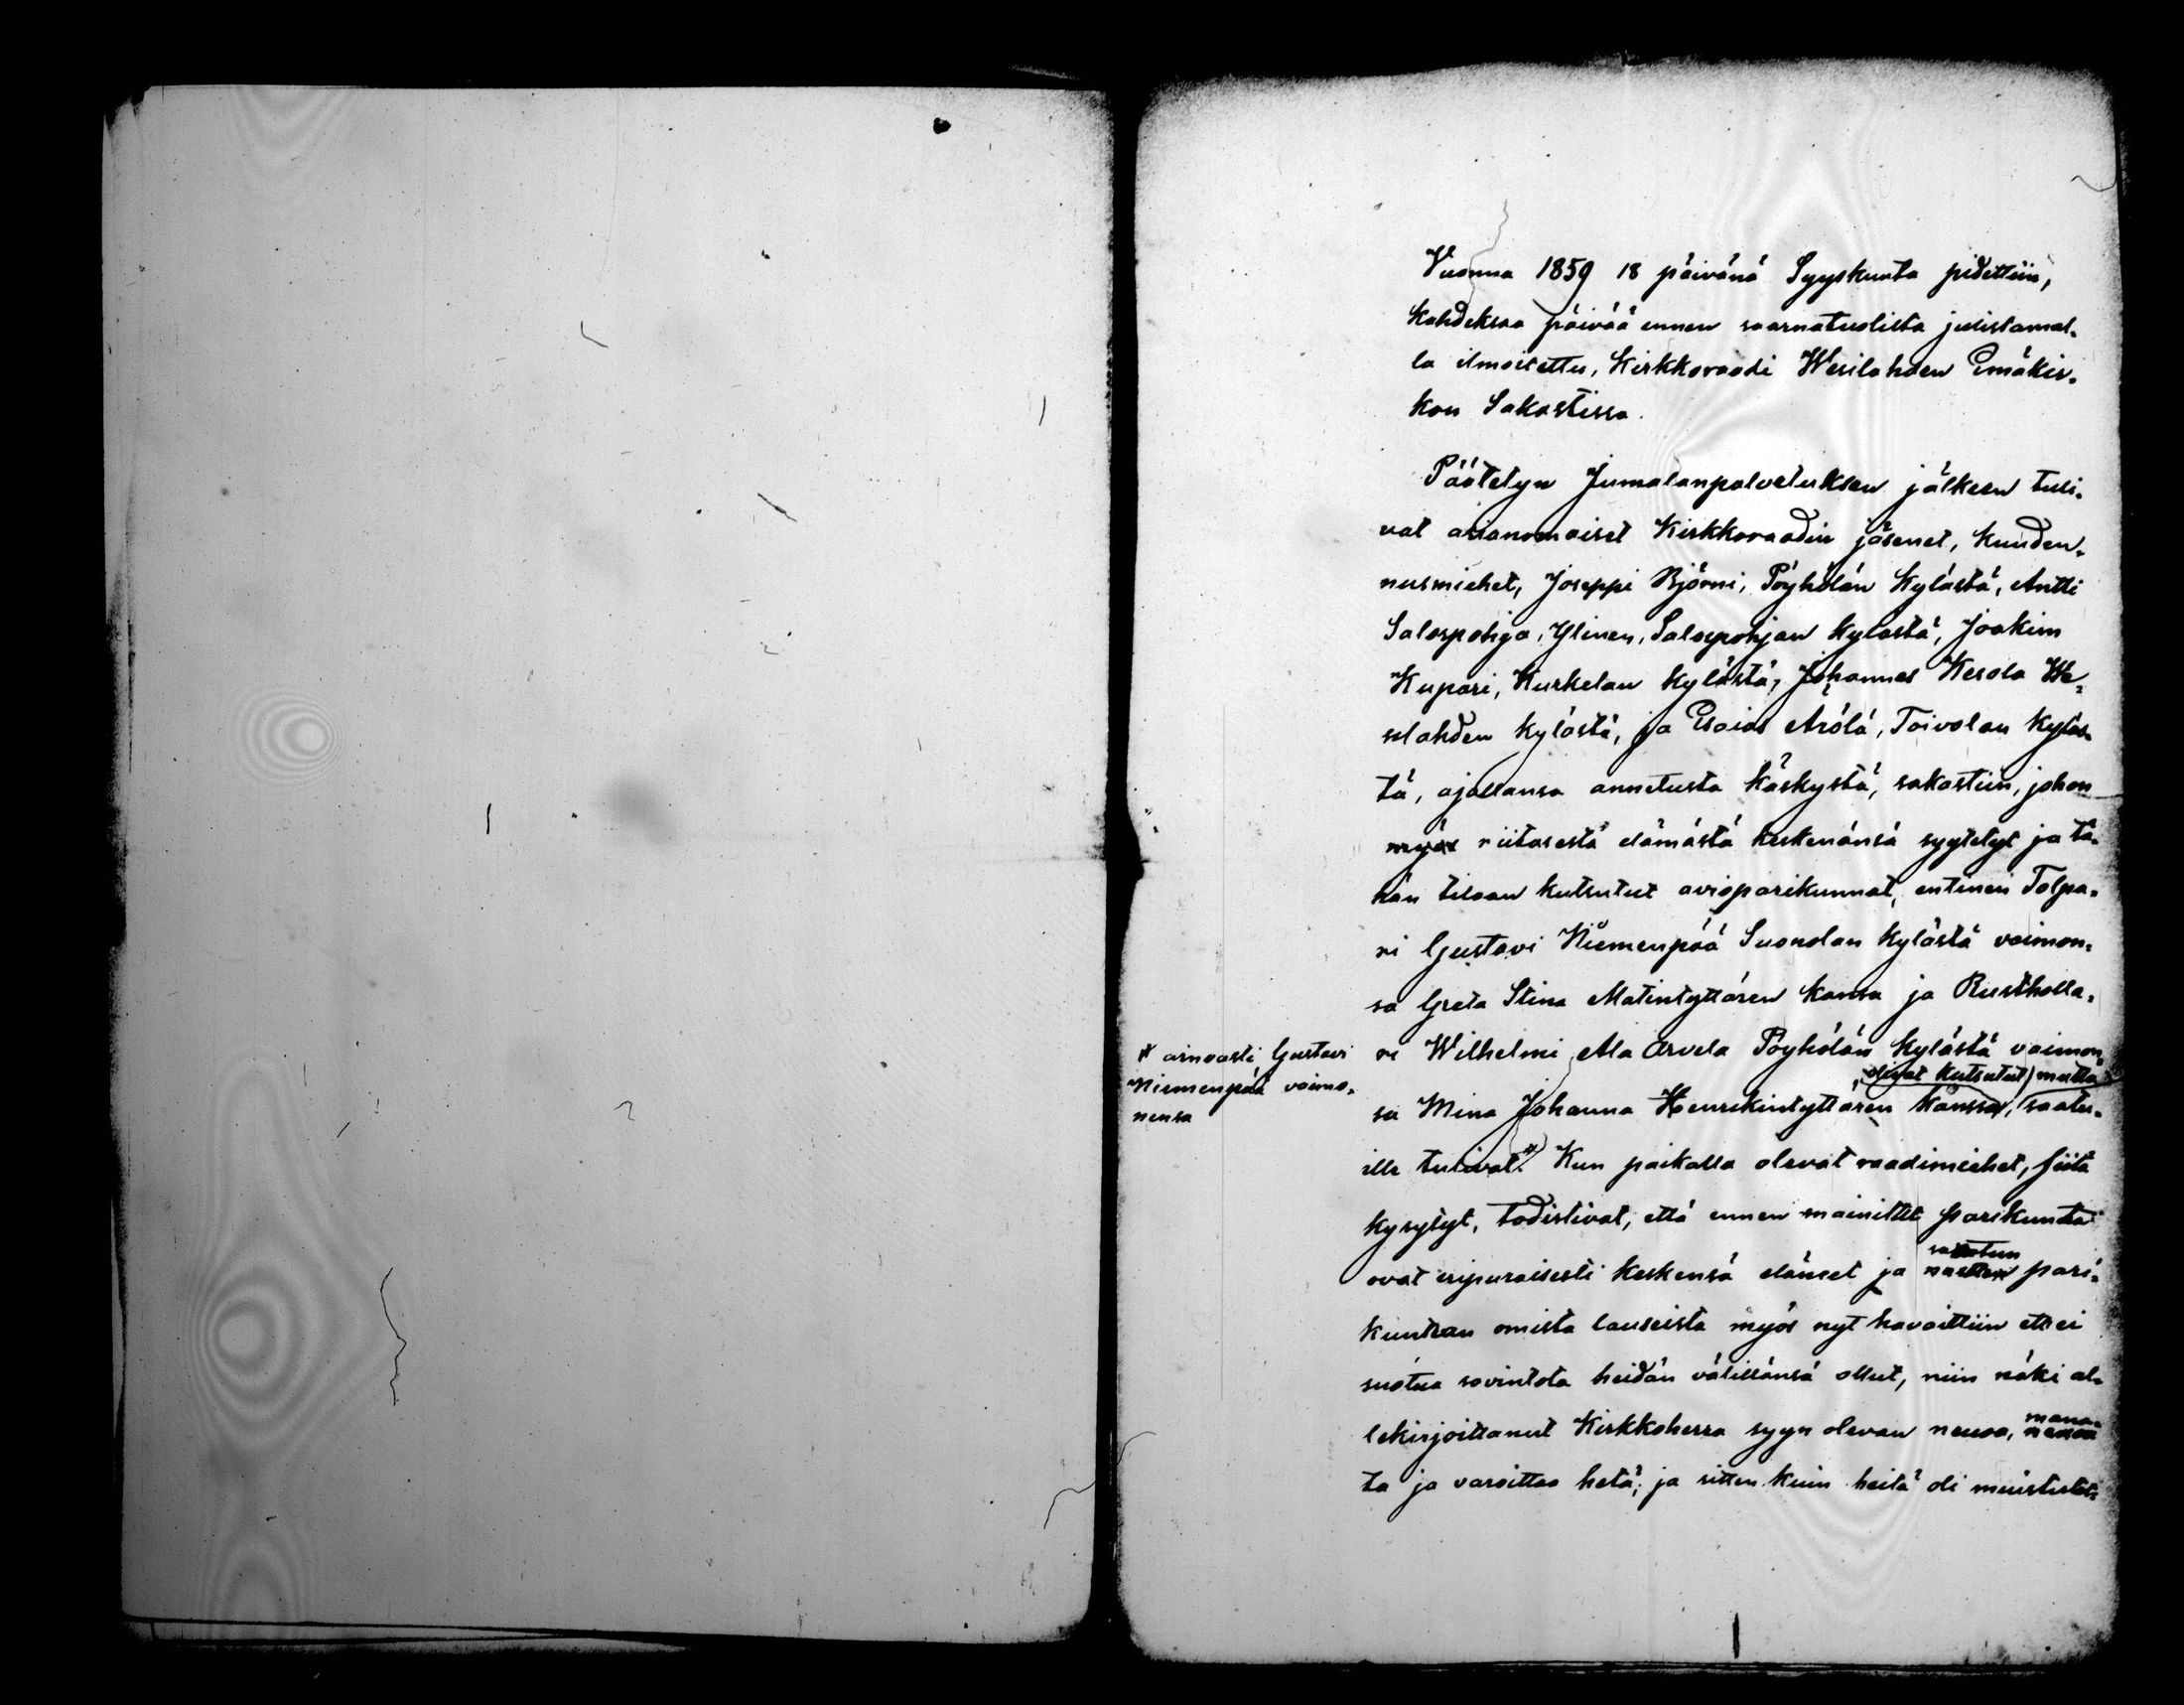 Vuonna 1859 18 päivänä Syyskuuta pidettiin,
kahdeksaa päivää ennen saarnatuolista julistamal-
la ilmoitettu, Kirkkoraadi Wesilahden Emäkir-
kon Sakastissa.
Päätetyn Jumalanpalveluksen jälkeen tuli-
vat asianomaiset Kirkkoraadin jäsenet, kuuden-
nusmiehet, Joseppi Björni, Pöyhölän kylästä, Antti
Salospohja, Ylinen, Salospohjan kylästä, Joakim
Kupari, Kurkelan kylästä, Johannes Kesola We-
selahden kylästä, ja Esaias Arölä, Toivolan kyläs-
tä, ajallansa annetusta käskystä, sakastiin, johon
myös riitasesta elämästä keskenänsä syytetyt ja tä-
hän tilaan kutsutut avioparikunnat, entinen Tolpa-
ri Gustavi Niemenpää Suonolan kylästä vaimon-
sa Greta Stina Matintyttären kansa ja Rustholla-
ri Wilhelmi Ala Arvela Pöyhölän kylästä vaimon-
, olivat kutsutut) mutta
sa Mina Johanna Henrikintyttären kanssa, saatu-
# ainoasti Gustavi
Niemenpää vaimo-
nensa
ille tulivat.# Kun paikalla olevat raadimiehet, siitä
kysytyt, todistivat, että ennen mainittet parikunta
ovat eripuraisesti keskensä eläneet ja pari-
kunnan omista lauseista myös nyt havaittiin ettei
suotua sovintota heidän välillänsä ollut, niin näki al-
lekirjoittanut Kirkkoherra syyn olevan neuvoa, mana-
ta ja varoittaa hetä; ja sitten kuin heitä oli muistutet-